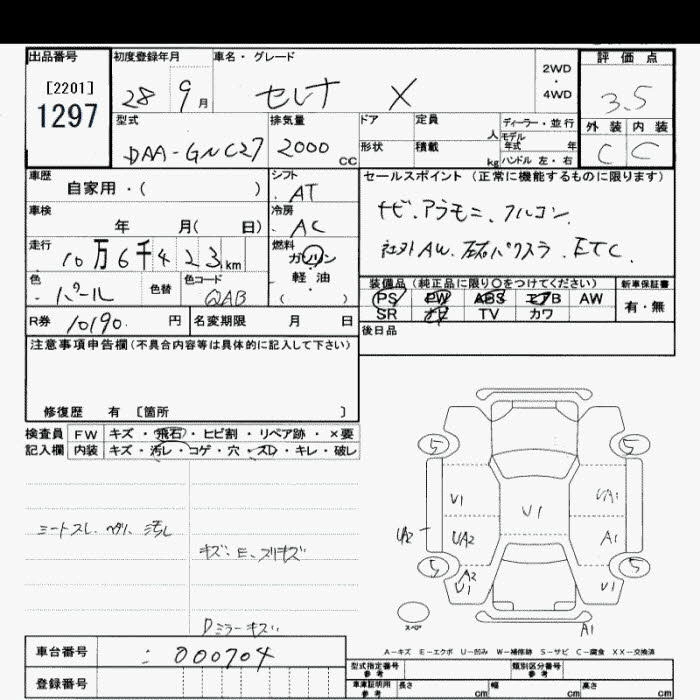 出品番号 初度登録年月 車名・グレード 評価点
[2201] 1297 28 9月 セレナ X 2WD・4WD 3.5
型式 排気量 ドア 定員 人 ディーラー・並行 外装 内装
DAA-GNC27 2000 CC 形状 積載 kg モデル年式 年 ハンドル 左・右 C C
車歴 シフト セールスポイント (正常に機能するものに限ります)
自家用・( ) AT
車検 冷房 ナビ.アラモニ.フルコン.
年 月( 日) AC
走行 燃料 社外AW.左右パワスラ.ETC.
10万6千423km ガソリン・軽油 ( )
色 色替 色コード 装備品(純正品に限り○をつけてください) 新車保証書
パール QAB PS PW ABS エアB AW 有・無
R券 10190. 円 名変期限 月 日 SR ナビ TV カワ
注意事項申告欄(不具合内容等は具体的に記入して下さい) 後日品
修復歴 有 [箇所 ]
検査員 FW キズ・飛石・ヒビ割・リペア跡・×要
記入欄 内装 キズ・汚レ・コゲ・穴・スレ・キレ・破レ
5 5
V1 V1 UA1
UA2 UA2 A1
シートスレ. 汚レ
キズ、E、スリキズ
5 A2 V1 V1 5
Dミラーキズ
スペア A1
A-キズ E-エクボ U-凹み W-補修跡 S-サビ C-腐食 XX-交換済
車台番号 000704 型式指定番号 参考 類別区分番号 参考
登録番号 車庫証明用 参考 長さ cm 幅 cm 高さ cm